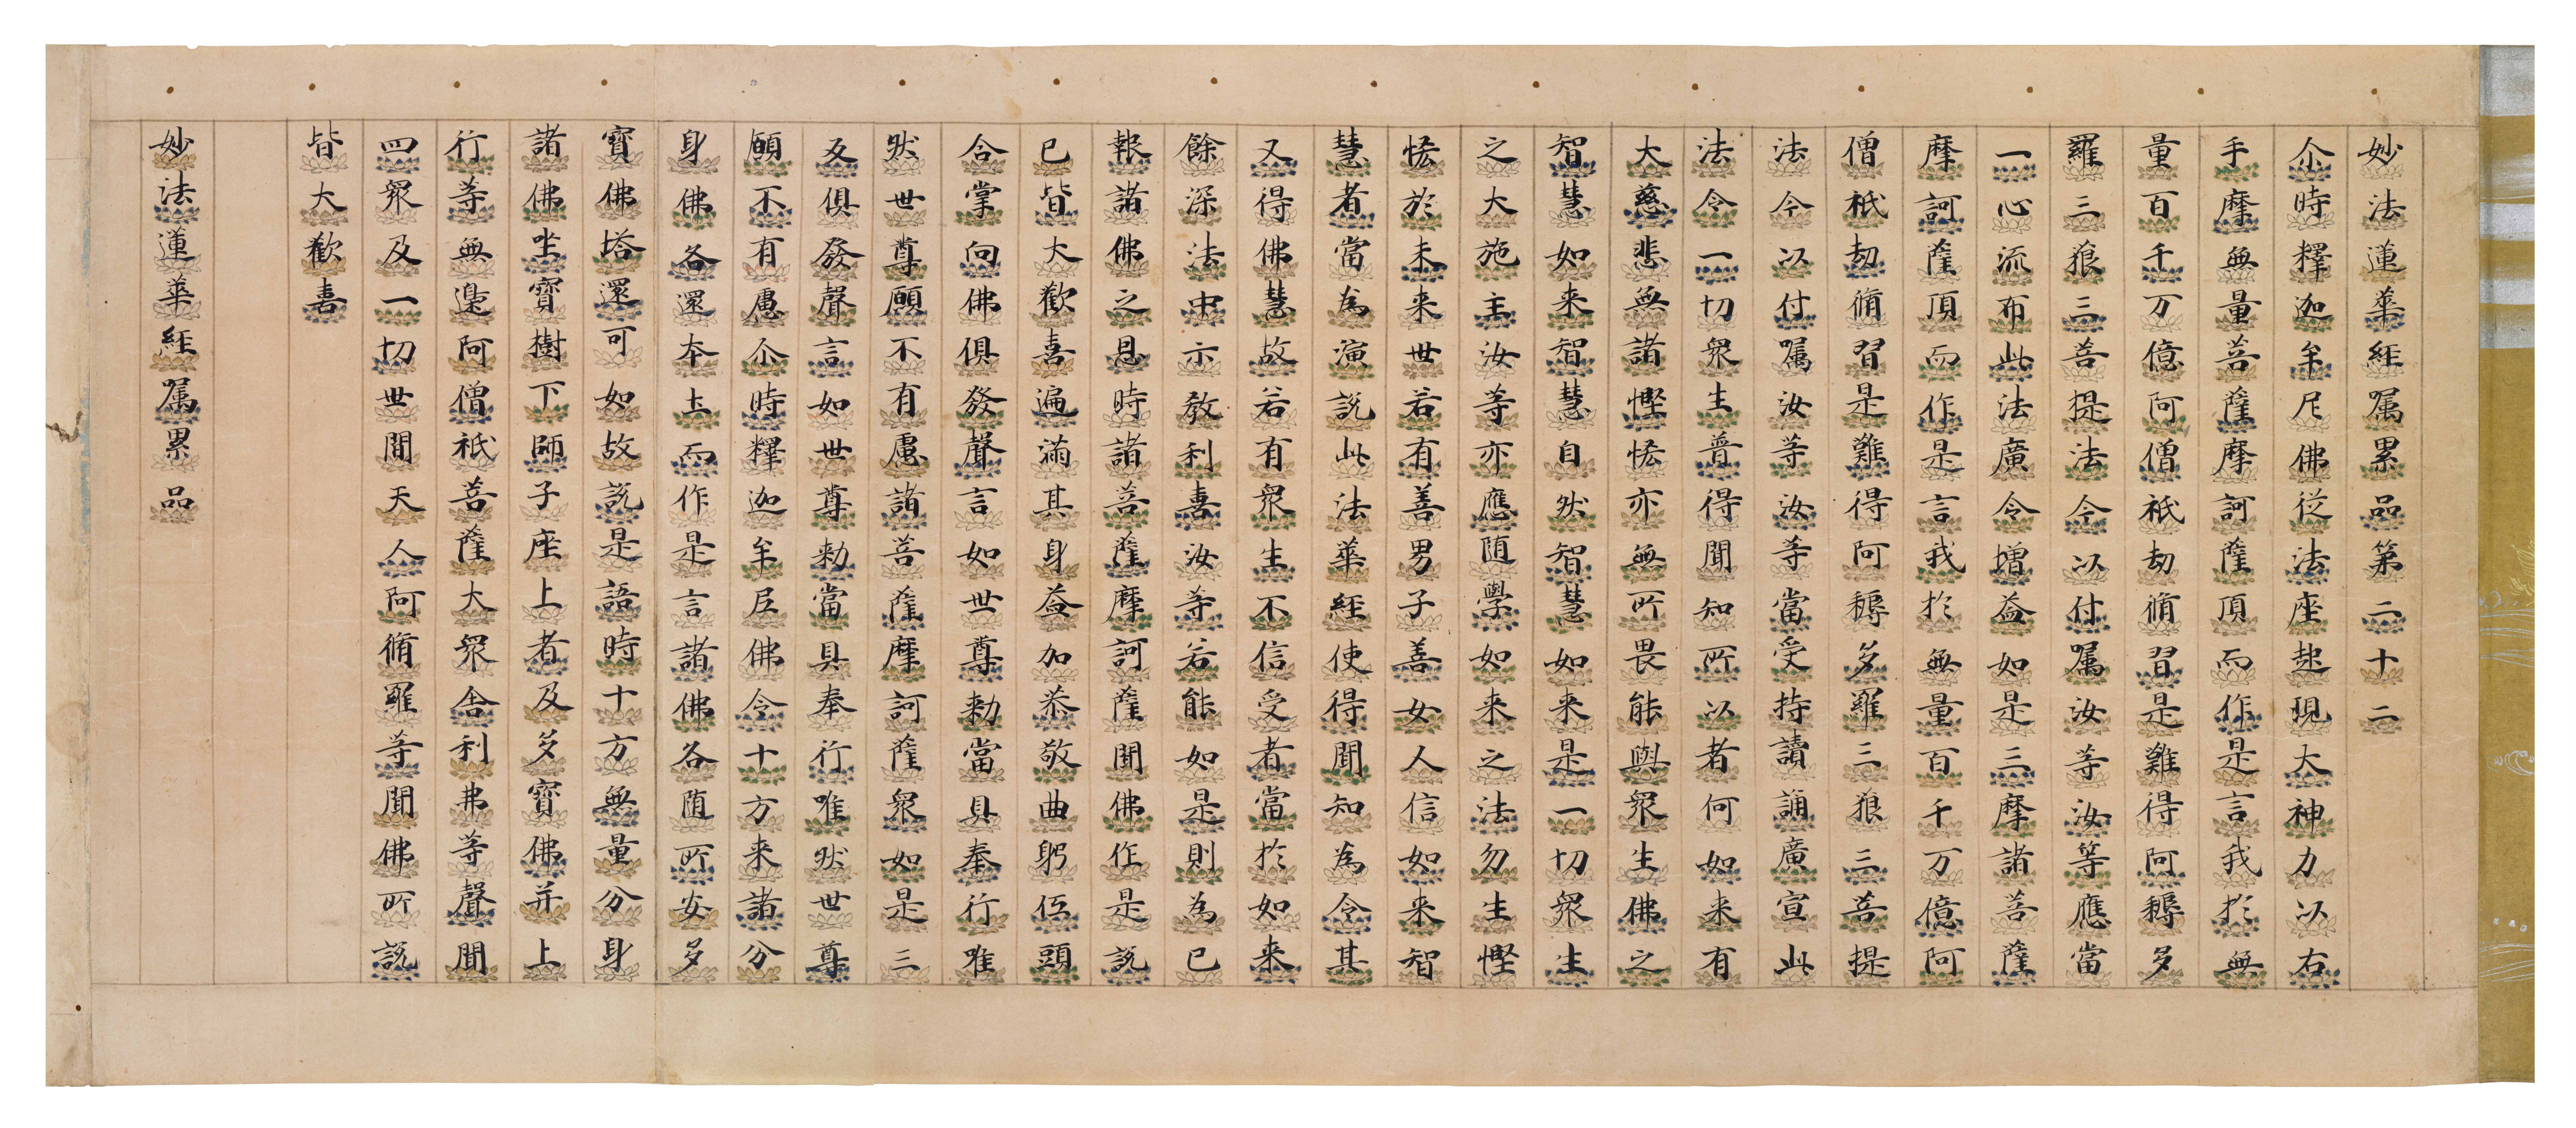 妙法蓮華經属累品第二十二
尒時釋迦牟尼佛從法座起現大神力以右
手摩無量菩薩摩訶薩頂而作是言我於無
量百千万億阿僧祇劫脩習是難得阿耨多
羅三藐三菩提法今以付属汝等汝等應當
一心流布此法廣令增益如是三摩諸菩薩
摩訶薩頂而作是言我於無量百千万億阿
僧祇劫脩習是難得阿耨多羅三藐三菩提
法今以付属汝等汝等當受持讀誦廣宣此
法令一切衆生普得聞知所以者何如来有
大慈悲無諸慳悋亦無所畏能與衆生佛之
智慧如来智慧自然智慧如来是一切衆生
之大施主汝等亦應随學如来之法勿生慳
悋於未来世若有善男子善女人信如来智
慧者當為演說此法華經使得聞知為令其
又得佛慧故若有衆生不信受者當於如来
餘深法中示教利喜汝等若能如是則為已
報諸佛之恩時諸菩薩摩訶薩聞佛作是說
已皆大歡喜遍滿其身益加恭敬曲躬伍頭
合掌向佛俱發聲言如世尊勑當具奉行唯
然世尊願不有慮諸菩薩摩訶薩衆如是三
反俱發聲言如世尊勑當具奉行唯然世尊
願不有慮尒時釋迦牟尼佛令十方来諸分
身佛各還本土而作是言諸佛各随所安多
寶佛塔還可如故說是語時十方無量分身
諸佛坐寶樹下師子座上者及多寶佛并上
行等無邊阿僧祇菩薩大衆舍利弗等聲聞
四衆及一切世間天人阿脩羅等聞佛所說
皆大歡喜
妙法蓮華經属累品